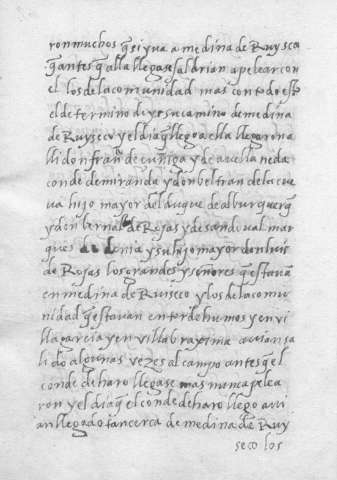 ron muchos q̃ si yva a medina de Ruysca
q̃ antes q̃ alla llegase saldrian a pelear con
el los de la comunidad mas con todo est
el determino de yr su camino de medina
de Ruyseco y el dia q̃ llego a ella llegaron a
lli don fran.co de cuñiga y de avellaneda
conde de miranda y don beltran de la cue
va hijo mayor del duque de alburquerq̃
y don bernal.do de Rojas y de sandoval mar
ques de denia y su hijo mayor don luis
de Rojas los grandes y señores q̃ estavã
en medina de Ruiseco y los de la comu
nidad q̃ estavan en tordehumos y en vi
lla garcia y en villabraxima avian sa
lido algunas vezes al campo antes q̃ el
conde de haro llegase mas nunca pelea
ron y el dia q̃ el conde de haro llego avi
an llegado tan cerca de medina de Ruy
seco los